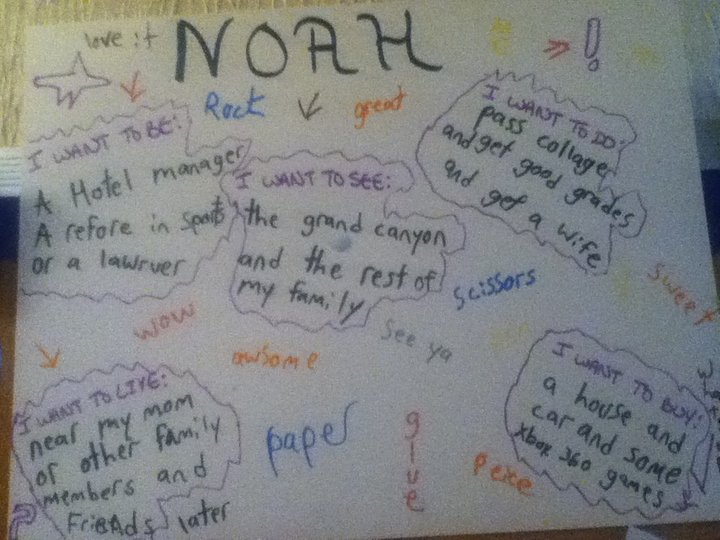 love it
NOAH
!
Rock
great
I WANT TO BE:
A Hotel manager
A refore in sports
or a lawruer
I WANT TO SEE:
the grand canyon
and the rest of
my family
I WANT TO DO:
pass collage
and get good grades
and get a wife
scissors
sweet
wow
awsome
see ya
I WANT TO LIVE:
near my mom
or other family
members and
Friends later
paper
glue
peice
I WANT TO BUY:
a house and
car and some
Xbox 360 games